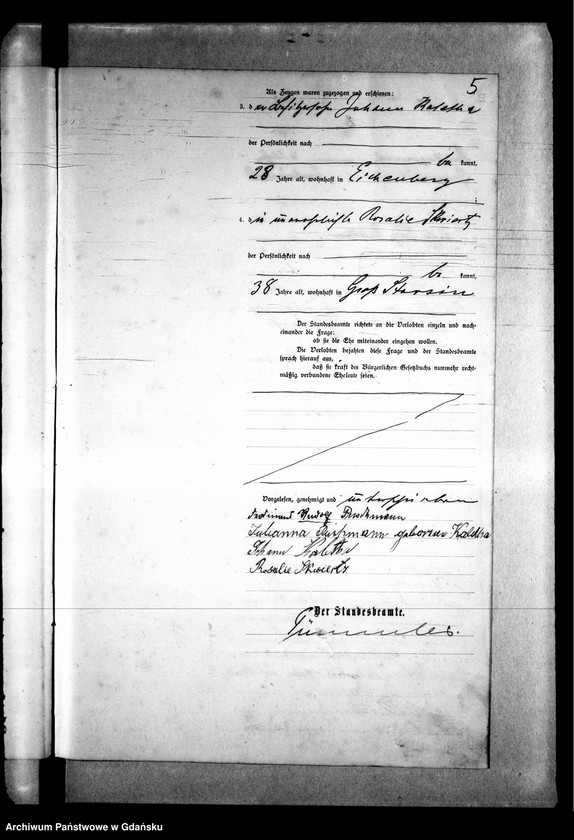 5
Als Zeugen waren zugezogen und erschienen:
3. der Besitzersohn Johann Kaletha
der Persönlichkeit nach
be kannt,
28 Jahre alt, wohnhaft in Eichenberg
;
4. die unverehelichte Rosalie Skwiertz
der Persönlichkeit nach
be kannt,
38 Jahre alt, wohnhaft in Groß Starsin
Der Standesbeamte richtete an die Verlobten einzeln und nach-
einander die Frage:
ob sie die Ehe miteinander eingehen wollen.
Die Verlobten bejahten diese Frage und der Standesbeamte
sprach hierauf aus,
daß sie kraft des Bürgerlichen Gesetzbuchs nunmehr recht-
mäßig verbundene Eheleute seien.
Vorgelesen, genehmigt und unterschrieben
Ferdinand Rudolf
Julianna geborene Kaletha
Johann Kaletha
Rosalie Skwiertz
Der Standesbeamte.
Archiwum Państwowe w Gdańsku